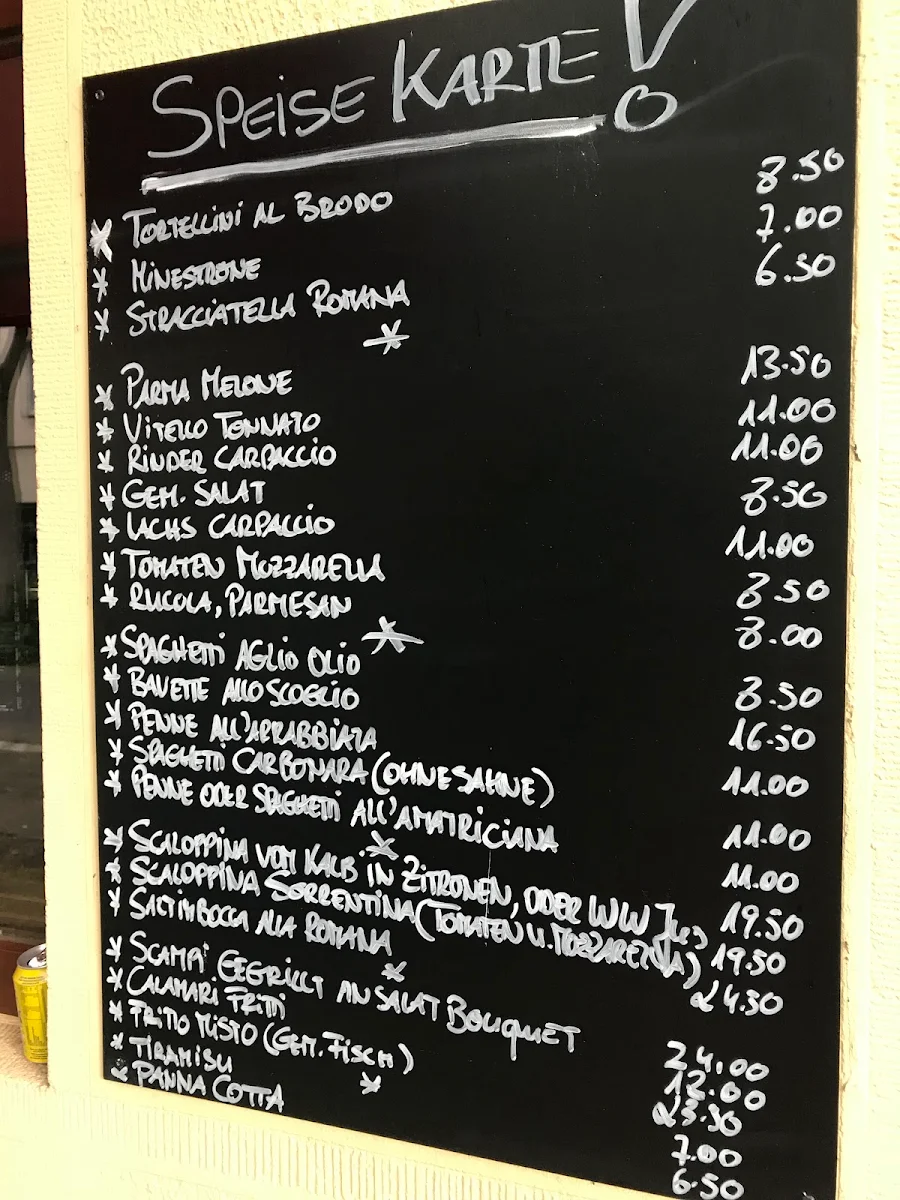 SPEISE KARTE !
* TORTELLINI AL BRODO 8.50
* MINESTRONE 7.00
* STRACCIATELLA ROMANA 6.50
*
* PARMA MELONE 13.50
* VITELLO TONNATO 11.00
* RINDER CARPACCIO 11.00
* GEM. SALAT 8.50
* LACHS CARPACCIO 11.00
* TOMATEN MOZZARELLA 8.50
* RUCOLA, PARMESAN 8.00
*
* SPAGHETTI AGLIO OLIO 8.50
* BAVETTE ALLO SCOGLIO 16.50
* PENNE ALL'ARRABBIATA 11.00
* SPAGHETTI CARBONARA (OHNE SAHNE) 11.00
* PENNE ODER SPAGHETTI ALL'AMATRICIANA 11.00
*
* SCALOPPINA VOM KALB IN ZITRONEN, ODER WW Jus 19.50
* SCALOPPINA SORRENTINA (TOMATEN U. MOZZARELLA) 19.50
* SALTIMBOCCA ALLA ROMANA 24.50
*
* SCAMPI GEGRILLT AN SALAT BOUQUET 24.00
* CALAMARI FRITTI 18.00
* FRITTO MISTO (GEM. FISCH) 23.50
*
* TIRAMISU 7.00
* PANNA COTTA 6.50